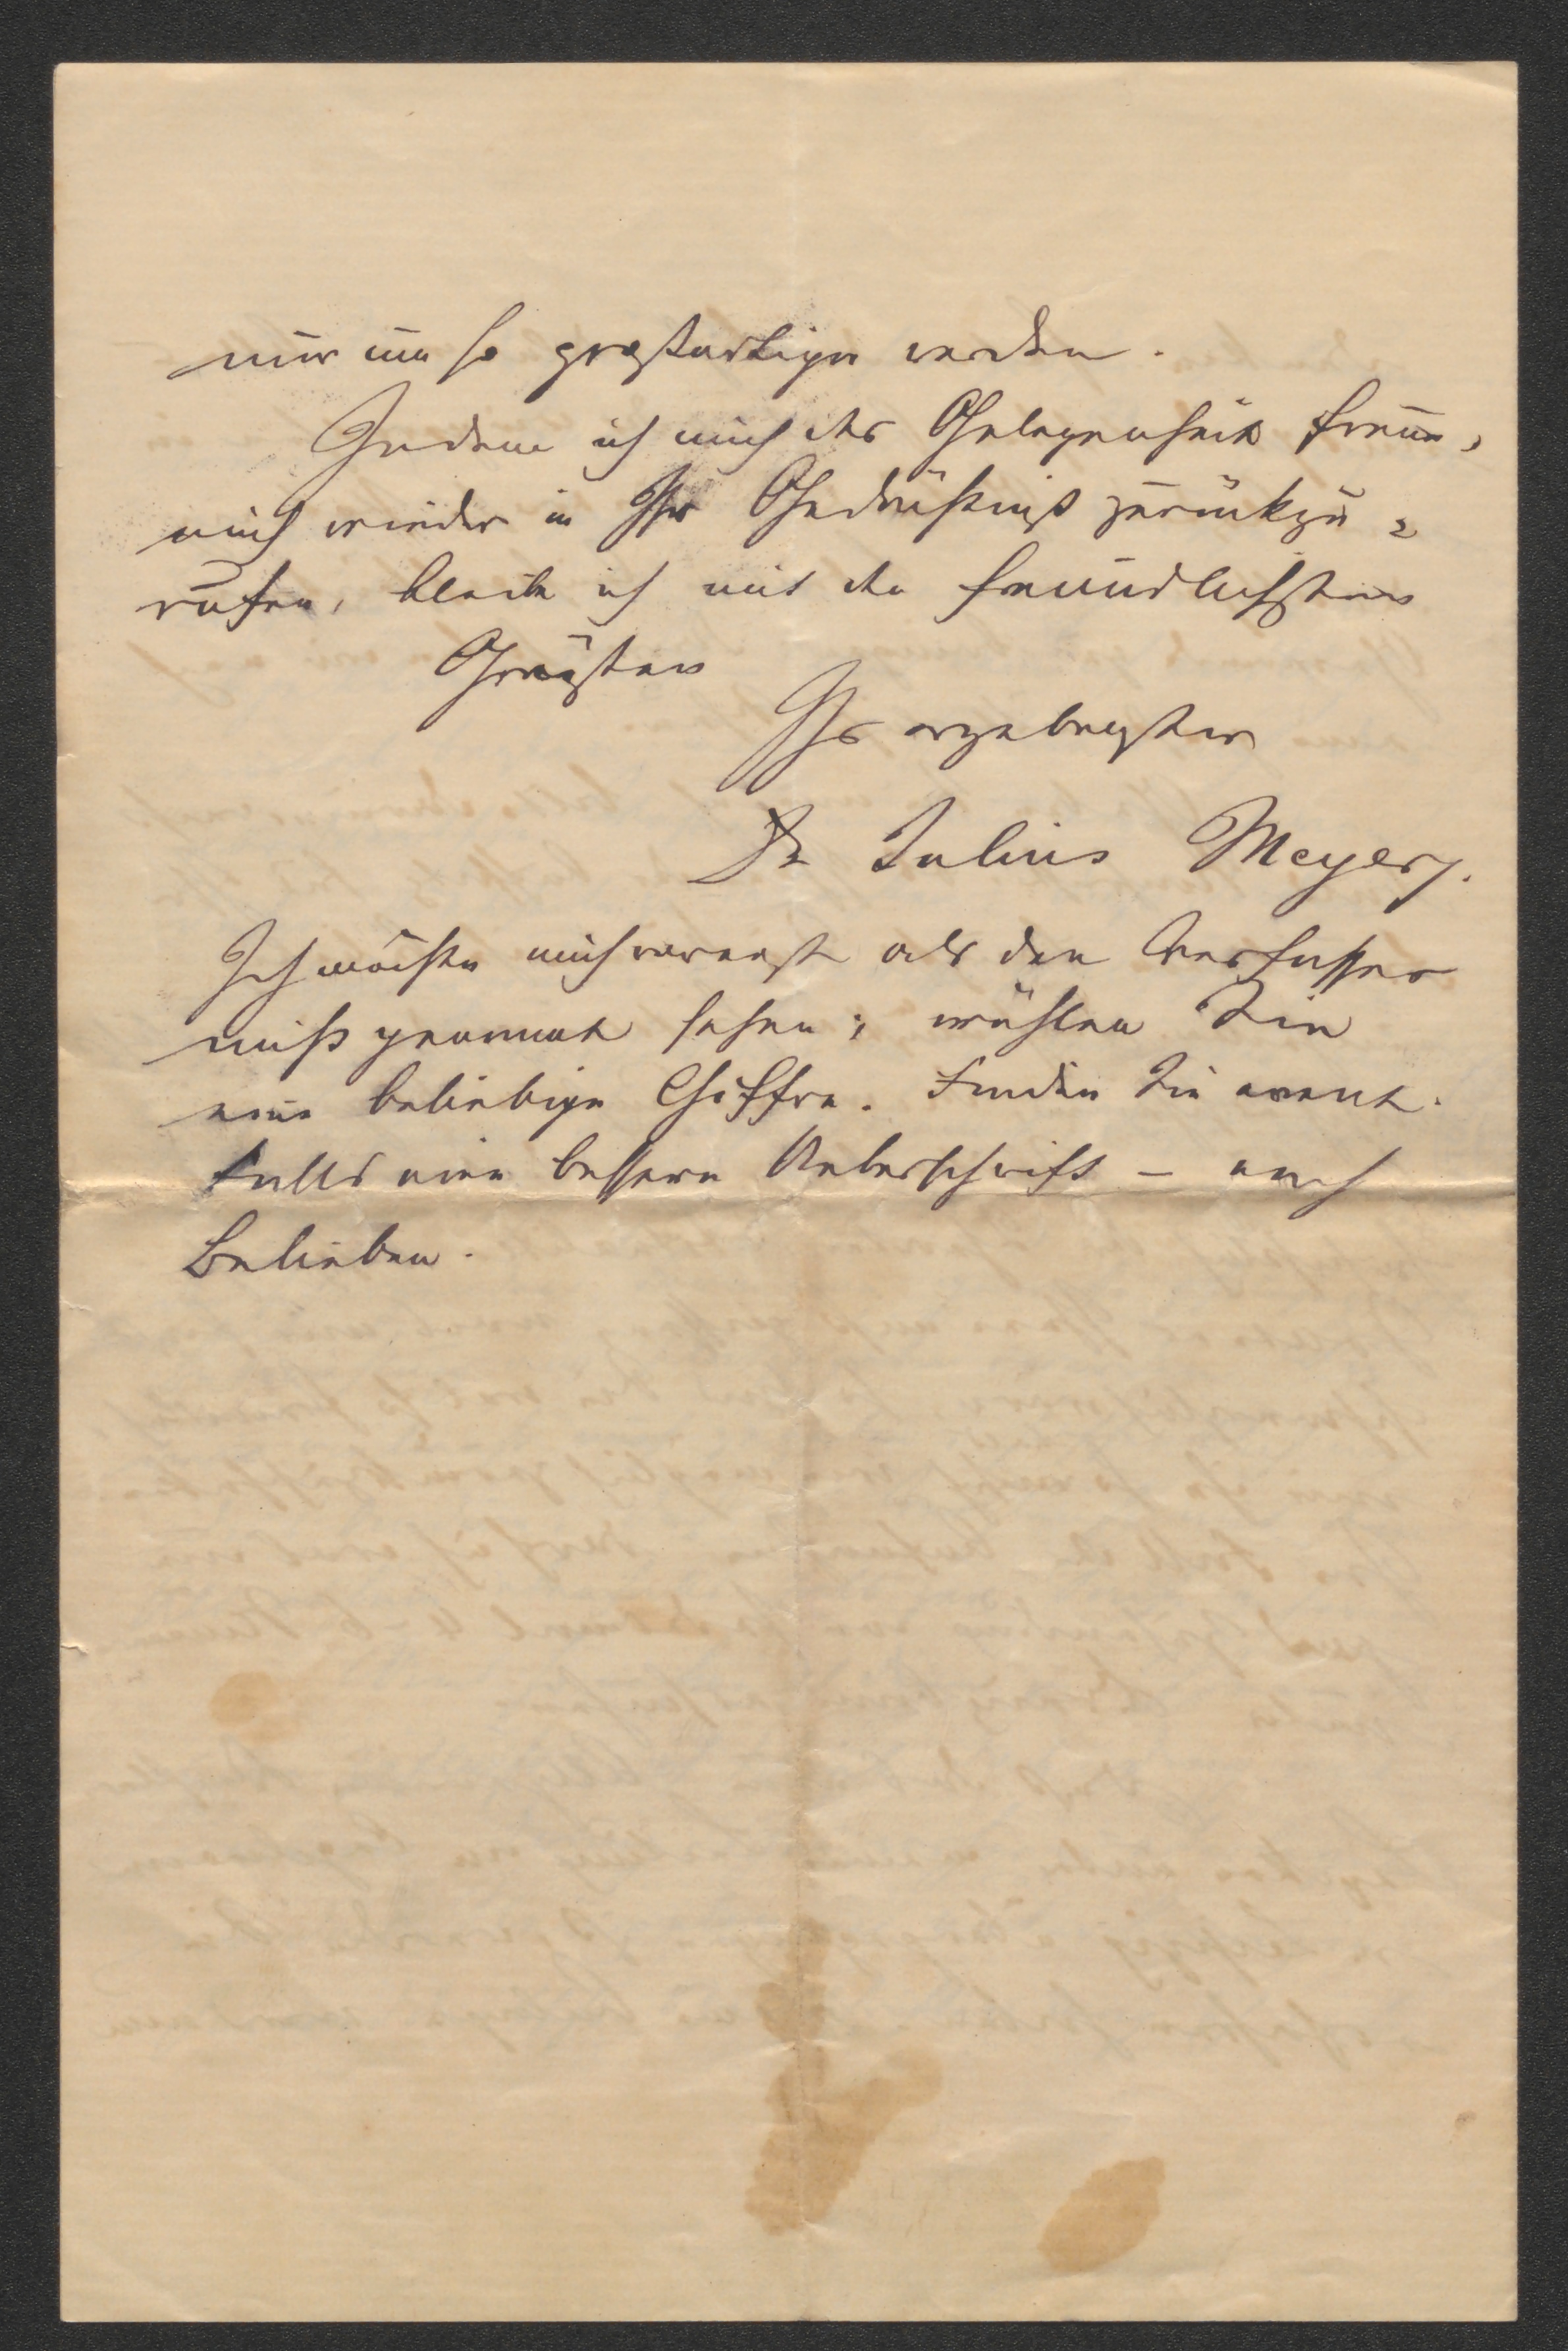 nur um so großartiger werden.
Indem ich mich der Gelegenheit freue,
mich wieder in Ihr Gedächtniß zurückzu-
rufen, bleibe ich mit den freundlichsten
Grüßen
Ihr ergebenster
Dr Julius Meyer.
Ich möchte mich vorerst als den Verfasser
nicht genannt sehen; wählen Sie
eine beliebige Chiffre. Finden Sie event.
falls eine bessere Ueberschrift – nach
Belieben.